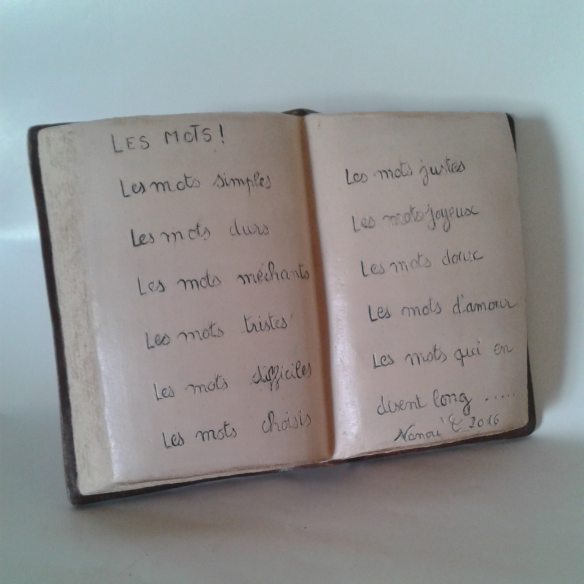 LES MOTS!
Les mots simples
Les mots durs
Les mots méchants
Les mots tristes
Les mots difficiles
Les mots choisis
Les mots justes
Les mots joyeux
Les mots doux
Les mots d'amour
Les mots qui en
disent long .....
2016